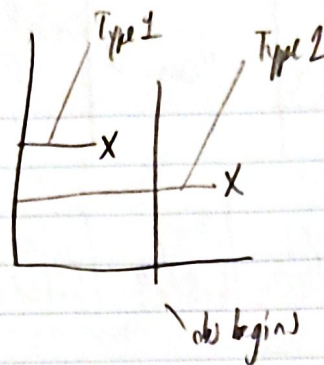 Type 1
Type 2
X
X
obs begins